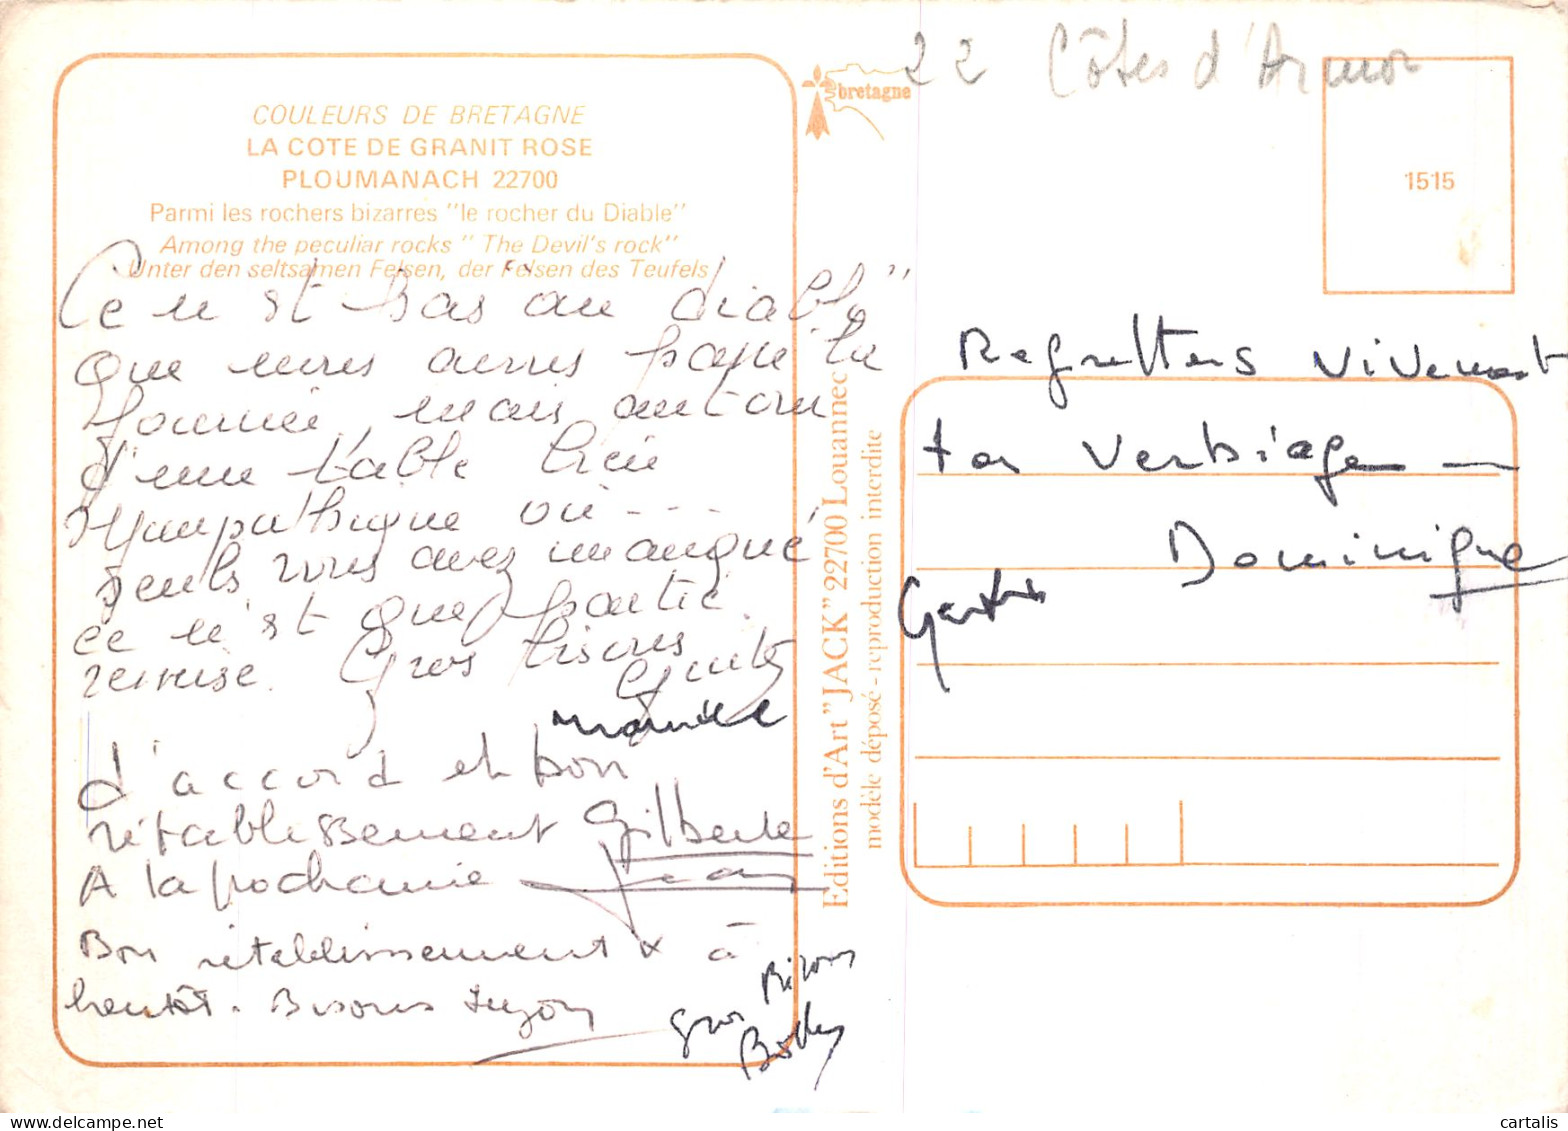 COULEURS DE BRETAGNE
LA COTE DE GRANIT ROSE
PLOUMANACH 22700
Parmi les rochers bizarres "le rocher du Diable"
Among the peculiar rocks " The Devil's rock"
Unter den seltsamen Felsen, der Felsen des Teufels
Ce n'est pas au "diable"
que nous avons passé la
journée, mais autour
d'une table bien
sympathique où - - -
seuls vous avez manqué
ce n'est que partie
remise. Gros bisous
d'accord et bon
rétablissement Gilberte
A la prochaine Jean
Bon rétablissement & à
bientôt. Bisous Suzon
gros Bisous
bretagne
22 Côtes d'Armor
1515
Editions d'Art "JACK" 22700 Louannec
modèle déposé - reproduction interdite
Regrettons vivement
ton verbiage -
Dominique
cartalis